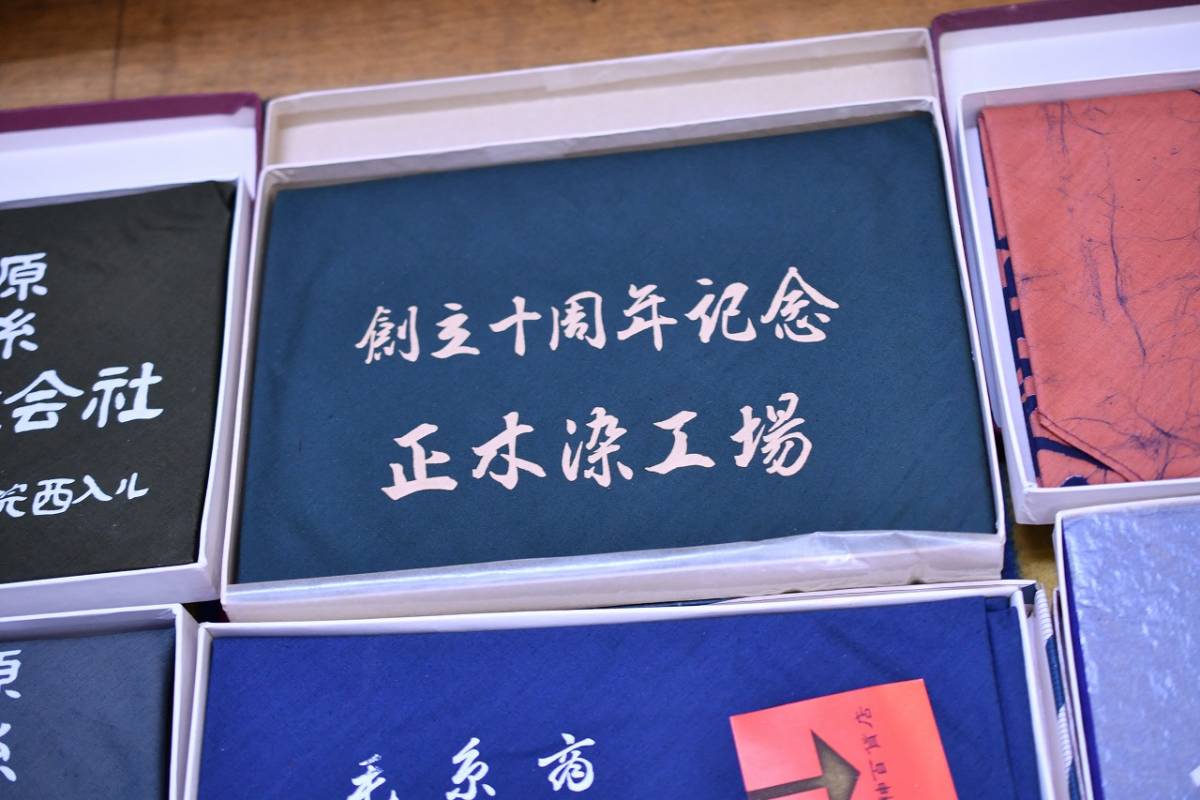 創立十周年記念
正木染工場
原
糸
会社
院西入ル
原
糸
毛糸商